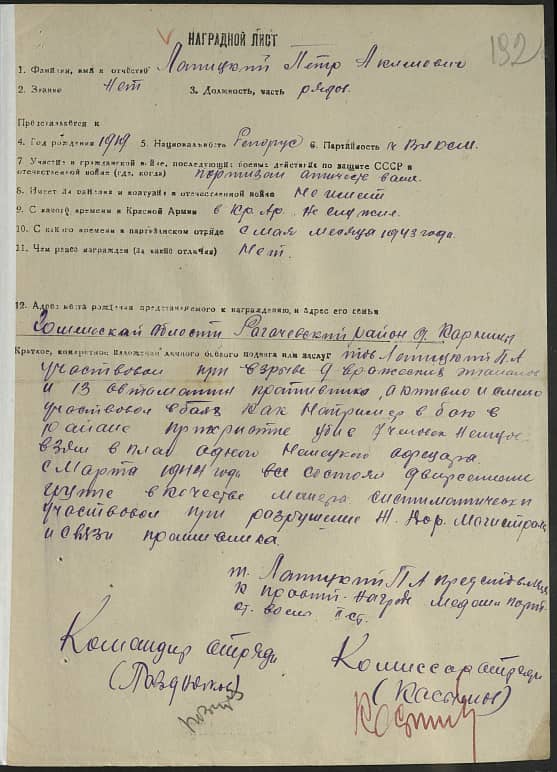 НАГРАДНОЙ ЛИСТ
192
1. Фамилия, имя и отчество Лапицкий Петр Акимович
2. Звание Нет 3. Должность, часть рядов.
Представляется к
4. Год рождения 1919 5. Национальность Белорус 6. Партийность ч ВЛКСМ.
7 Участие в гражданской войне, последующих боевых действиях по защите СССР и
отечественной войне (где, когда) партизан отечеств войне
8. Имеет ли ранения и контузии в отечественной войне Не имеет
9. С какого времени в Красной Армии в Кр. Ар. Не служил.
10. С какого времени в партизанском отряде с мая месяца 1943 года.
11. Чем ранее награжден (за какие отличия) Нет.
12. Адрес места рождения представляемого к награждению, и адрес его семьи
области Рагачевский район д.
Краткое, конкретное изложение личного боевого подвига или заслуг тов Лапицкий ПА
участвовал при взрыве 9 вражеских эшелонов
и 13 автомашин противника, активно и смело
участвовал в боях как Например в бою в
районе убив 7 человек Немцев
взял в плен одного Немецкого офицера.
с Марта 1944 года состоял диверсионно
группе в качестве минера систиматически
участвовал при разрушение Ж. Дор. Магистрал
и связи противника.
т. Лапицкий ПА представляется
к правит. Награде медали парт.
от. войн. II ст.
Командир отряда
Комиссар отряда